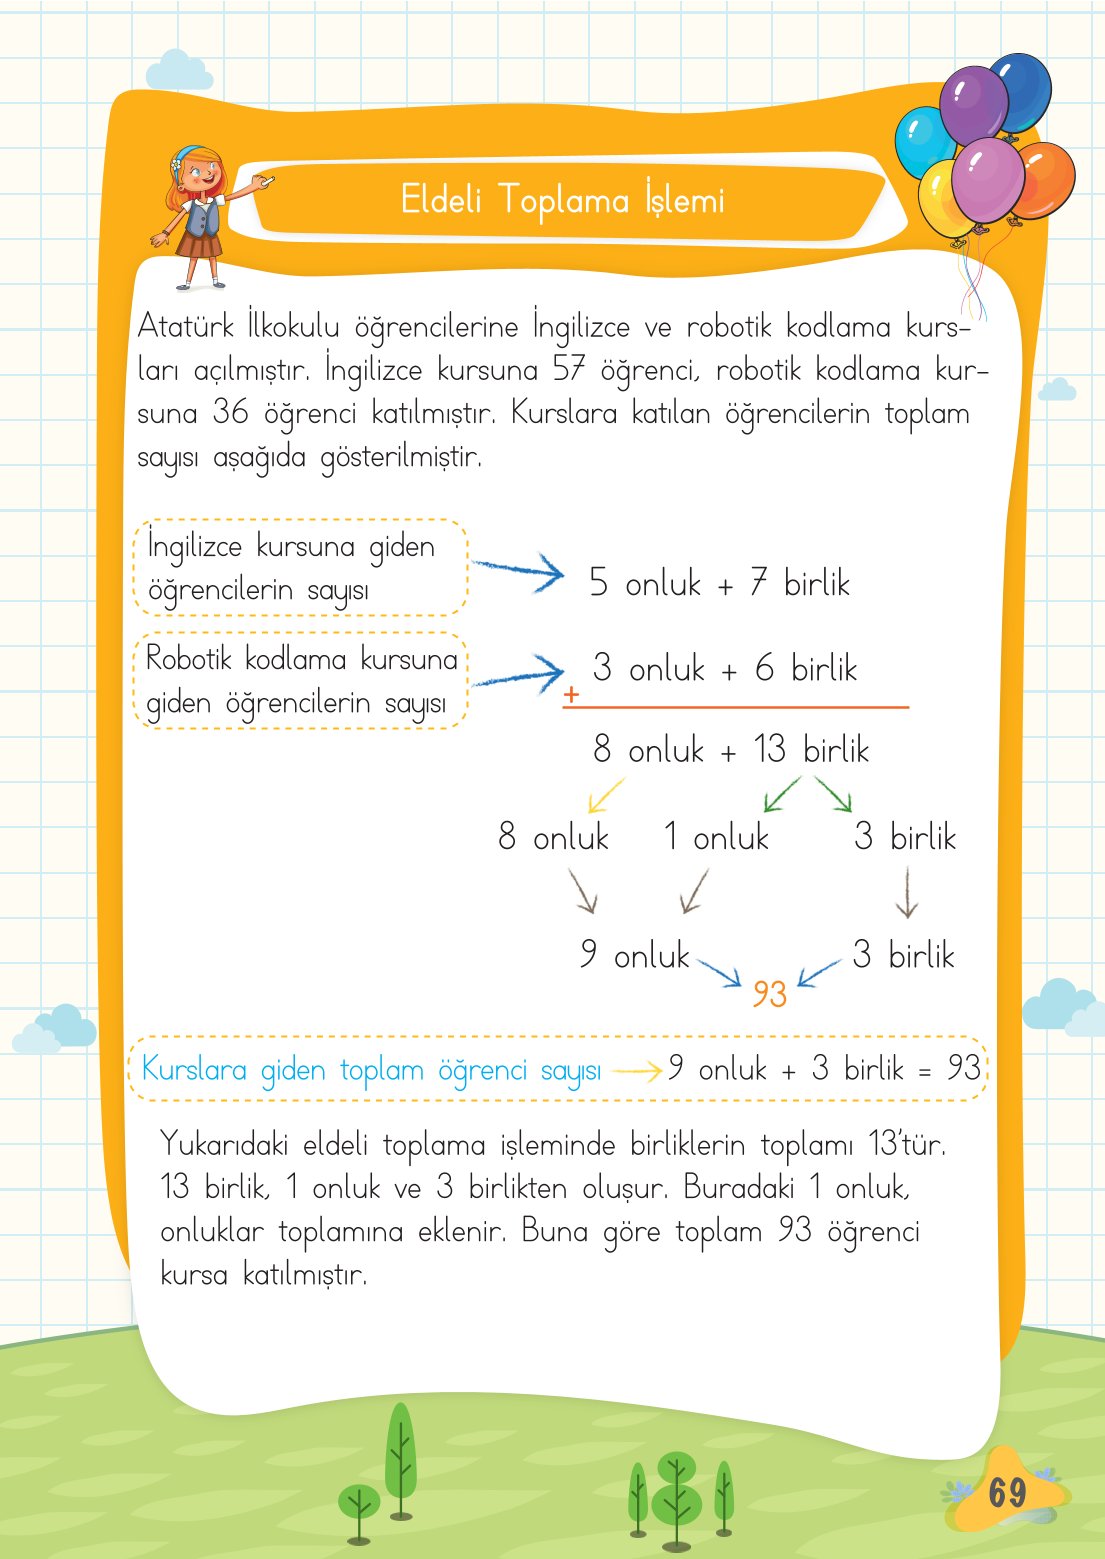 Eldeli Toplama İşlemi
Atatürk İlkokulu öğrencilerine İngilizce ve robotik kodlama kurs-
ları açılmıştır. İngilizce kursuna 57 öğrenci, robotik kodlama kur-
suna 36 öğrenci katılmıştır. Kurslara katılan öğrencilerin toplam
sayısı aşağıda gösterilmiştir.
İngilizce kursuna giden
öğrencilerin sayısı
5 onluk + 7 birlik
Robotik kodlama kursuna
giden öğrencilerin sayısı
3 onluk + 6 birlik
+
8 onluk + 13 birlik
8 onluk 1 onluk 3 birlik
9 onluk 3 birlik
93
Kurslara giden toplam öğrenci sayısı 9 onluk + 3 birlik = 93
Yukarıdaki eldeli toplama işleminde birliklerin toplamı 13'tür.
13 birlik, 1 onluk ve 3 birlikten oluşur. Buradaki 1 onluk,
onluklar toplamına eklenir. Buna göre toplam 93 öğrenci
kursa katılmıştır.
69